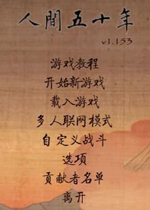 人間五十年
v1.153
游戏教程
开始新游戏
载入游戏
多人联网模式
自定义战斗
选项
贡献者名单
离开